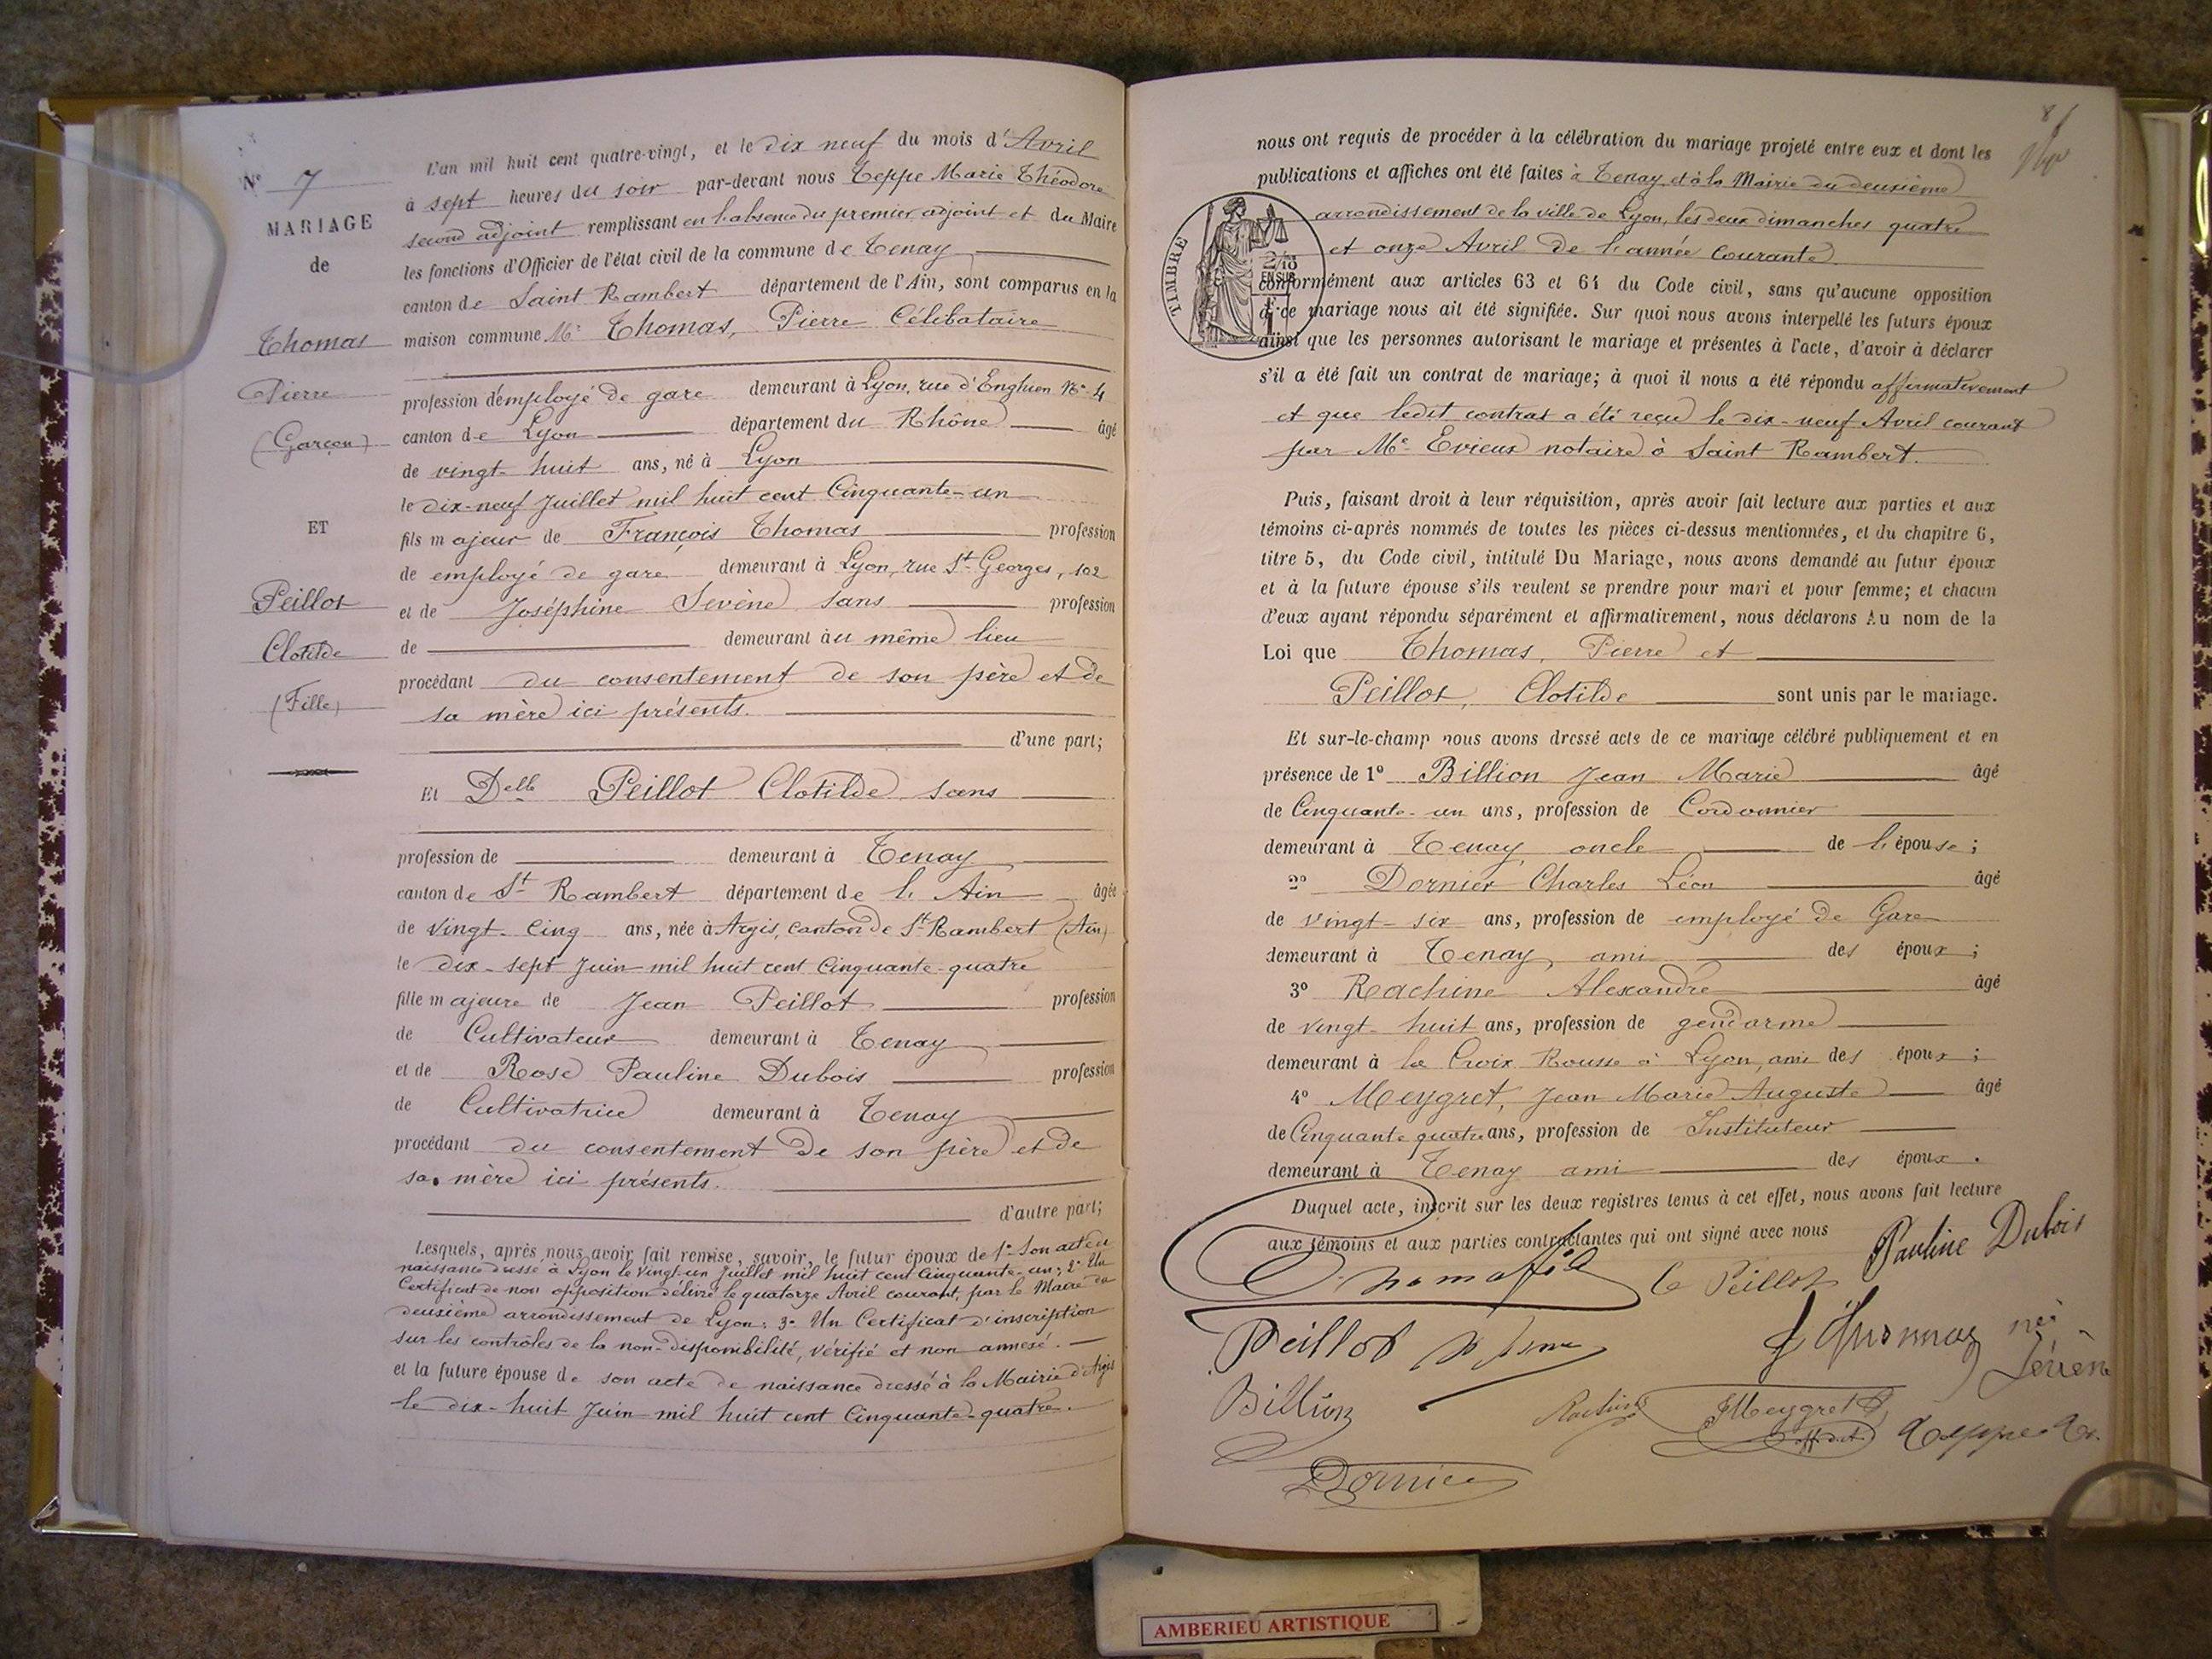 N° 7
MARIAGE
de
Thomas
Pierre
(Garçon)
ET
Peillot
Clotilde
(Fille)
L'an mil huit cent quatre-vingt, et le dix neuf du mois d'Avril
à sept heures du soir par-devant nous Teppe Marie Théodore
second adjoint remplissant en l'absence du premier adjoint et du Maire
les fonctions d'Officier de l'état civil de la commune de Tenay
canton de Saint Rambert département de l'Ain, sont comparus en la
maison commune Mr Thomas, Pierre Célibataire
profession d'employé de gare demeurant à Lyon, rue d'Enghien No 4
canton de Lyon département du Rhône âgé
de vingt-huit ans, né à Lyon
le dix-neuf Juillet mil huit cent Cinquante-un
fils majeur de François Thomas profession
de employé de gare demeurant à Lyon, rue St Georges, 102
et de Joséphine Sevène sans profession
de demeurant au même lieu
procédant du consentement de son père et de
sa mère ici présents.
d'une part;
Et Delle Peillot Clotilde sans
profession de demeurant à Tenay
canton de St Rambert département de l'Ain âgée
de vingt-cinq ans, née à Argis, canton de St Rambert (Ain)
le dix-sept Juin mil huit cent Cinquante-quatre
fille majeure de Jean Peillot profession
de Cultivateur demeurant à Tenay
et de Rose Pauline Dubois profession
de Cultivatrice demeurant à Tenay
procédant du consentement de son père et de
sa mère ici présents.
d'autre part;
Lesquels, après nous avoir fait remise, savoir, le futur époux de 1° Son acte de
naissance dressé à Lyon le vingt-un Juillet mil huit cent Cinquante-un; 2° Un
Certificat de non opposition délivré le quatorze Avril courant, par le Maire du
deuxième arrondissement de Lyon; 3° Un Certificat d'inscription
sur les contrôles de la non-disponibilité, vérifié et non annexé.
et la future épouse de son acte de naissance dressé à la Mairie d'Argis
le dix-huit Juin mil huit cent Cinquante-quatre.
8
nous ont requis de procéder à la célébration du mariage projeté entre eux et dont les
publications et affiches ont été faites à Tenay et à la Mairie du deuxième
arrondissement de la ville de Lyon, les deux dimanches quatre
et onze Avril de l'année courante.
TIMBRE
2/10
EN SUS
conformément aux articles 63 et 64 du Code civil, sans qu'aucune opposition
à ce mariage nous ait été signifiée. Sur quoi nous avons interpellé les futurs époux
ainsi que les personnes autorisant le mariage et présentes à l'acte, d'avoir à déclarer
s'il a été fait un contrat de mariage; à quoi il nous a été répondu affirmativement
et que ledit contrat a été reçu le dix-neuf Avril courant
par Me Evieux notaire à Saint Rambert.
Puis, faisant droit à leur réquisition, après avoir fait lecture aux parties et aux
témoins ci-après nommés de toutes les pièces ci-dessus mentionnées, et du chapitre 6,
titre 5, du Code civil, intitulé Du Mariage, nous avons demandé au futur époux
et à la future épouse s'ils veulent se prendre pour mari et pour femme; et chacun
d'eux ayant répondu séparément et affirmativement, nous déclarons Au nom de la
Loi que Thomas, Pierre et
Peillot, Clotilde sont unis par le mariage.
Et sur-le-champ nous avons dressé acte de ce mariage célébré publiquement et en
présence de 1° Billion Jean Marie âgé
de Cinquante-un ans, profession de Cordonnier
demeurant à Tenay, oncle de l'épouse;
2° Dornier Charles Léon âgé
de vingt-six ans, profession de employé de Gare
demeurant à Tenay, ami des époux;
3° Rachine Alexandre âgé
de vingt-huit ans, profession de gendarme
demeurant à la Croix Rousse à Lyon, ami des époux;
4° Meygret, Jean Marie Auguste âgé
de Cinquante quatre ans, profession de Instituteur
demeurant à Tenay ami des époux.
Duquel acte, inscrit sur les deux registres tenus à cet effet, nous avons fait lecture
aux témoins et aux parties contractantes qui ont signé avec nous
Pauline Dubois
Thomas fils
C Peillot
Peillot
née
Sevène
Billion
Rachine
JMeygret
Teppe
Dornier
AMBERIEU ARTISTIQUE